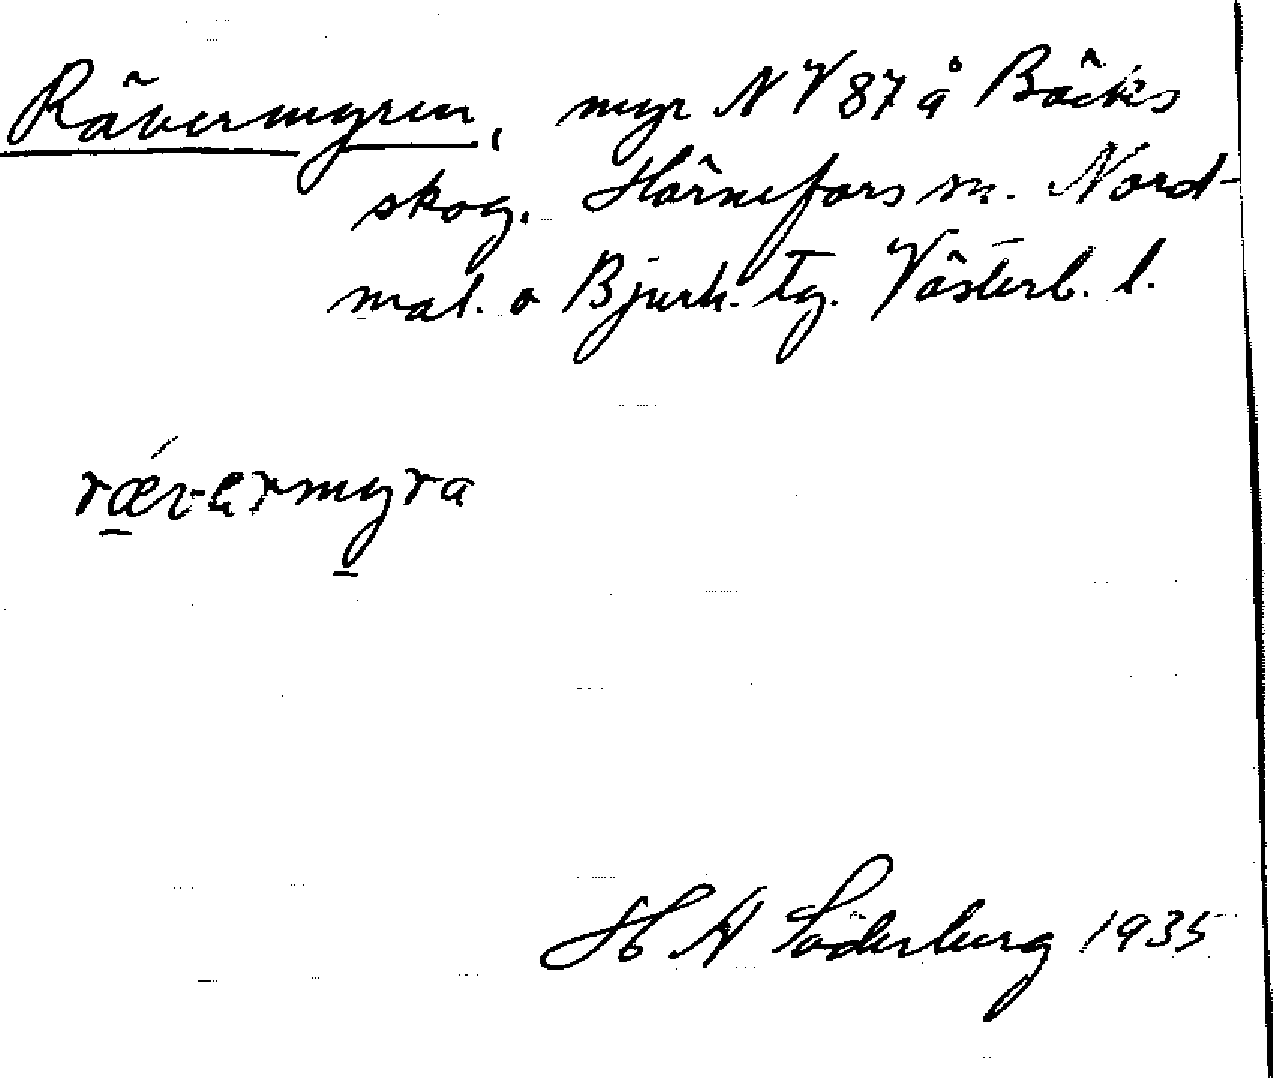 Rävermyren, myr NV 87 å Bäcks
skog. Hörnefors sn. Nord-
mal. o Bjurh. tg. Västerb. l.
rǽvermyra
H N Söderberg 1935